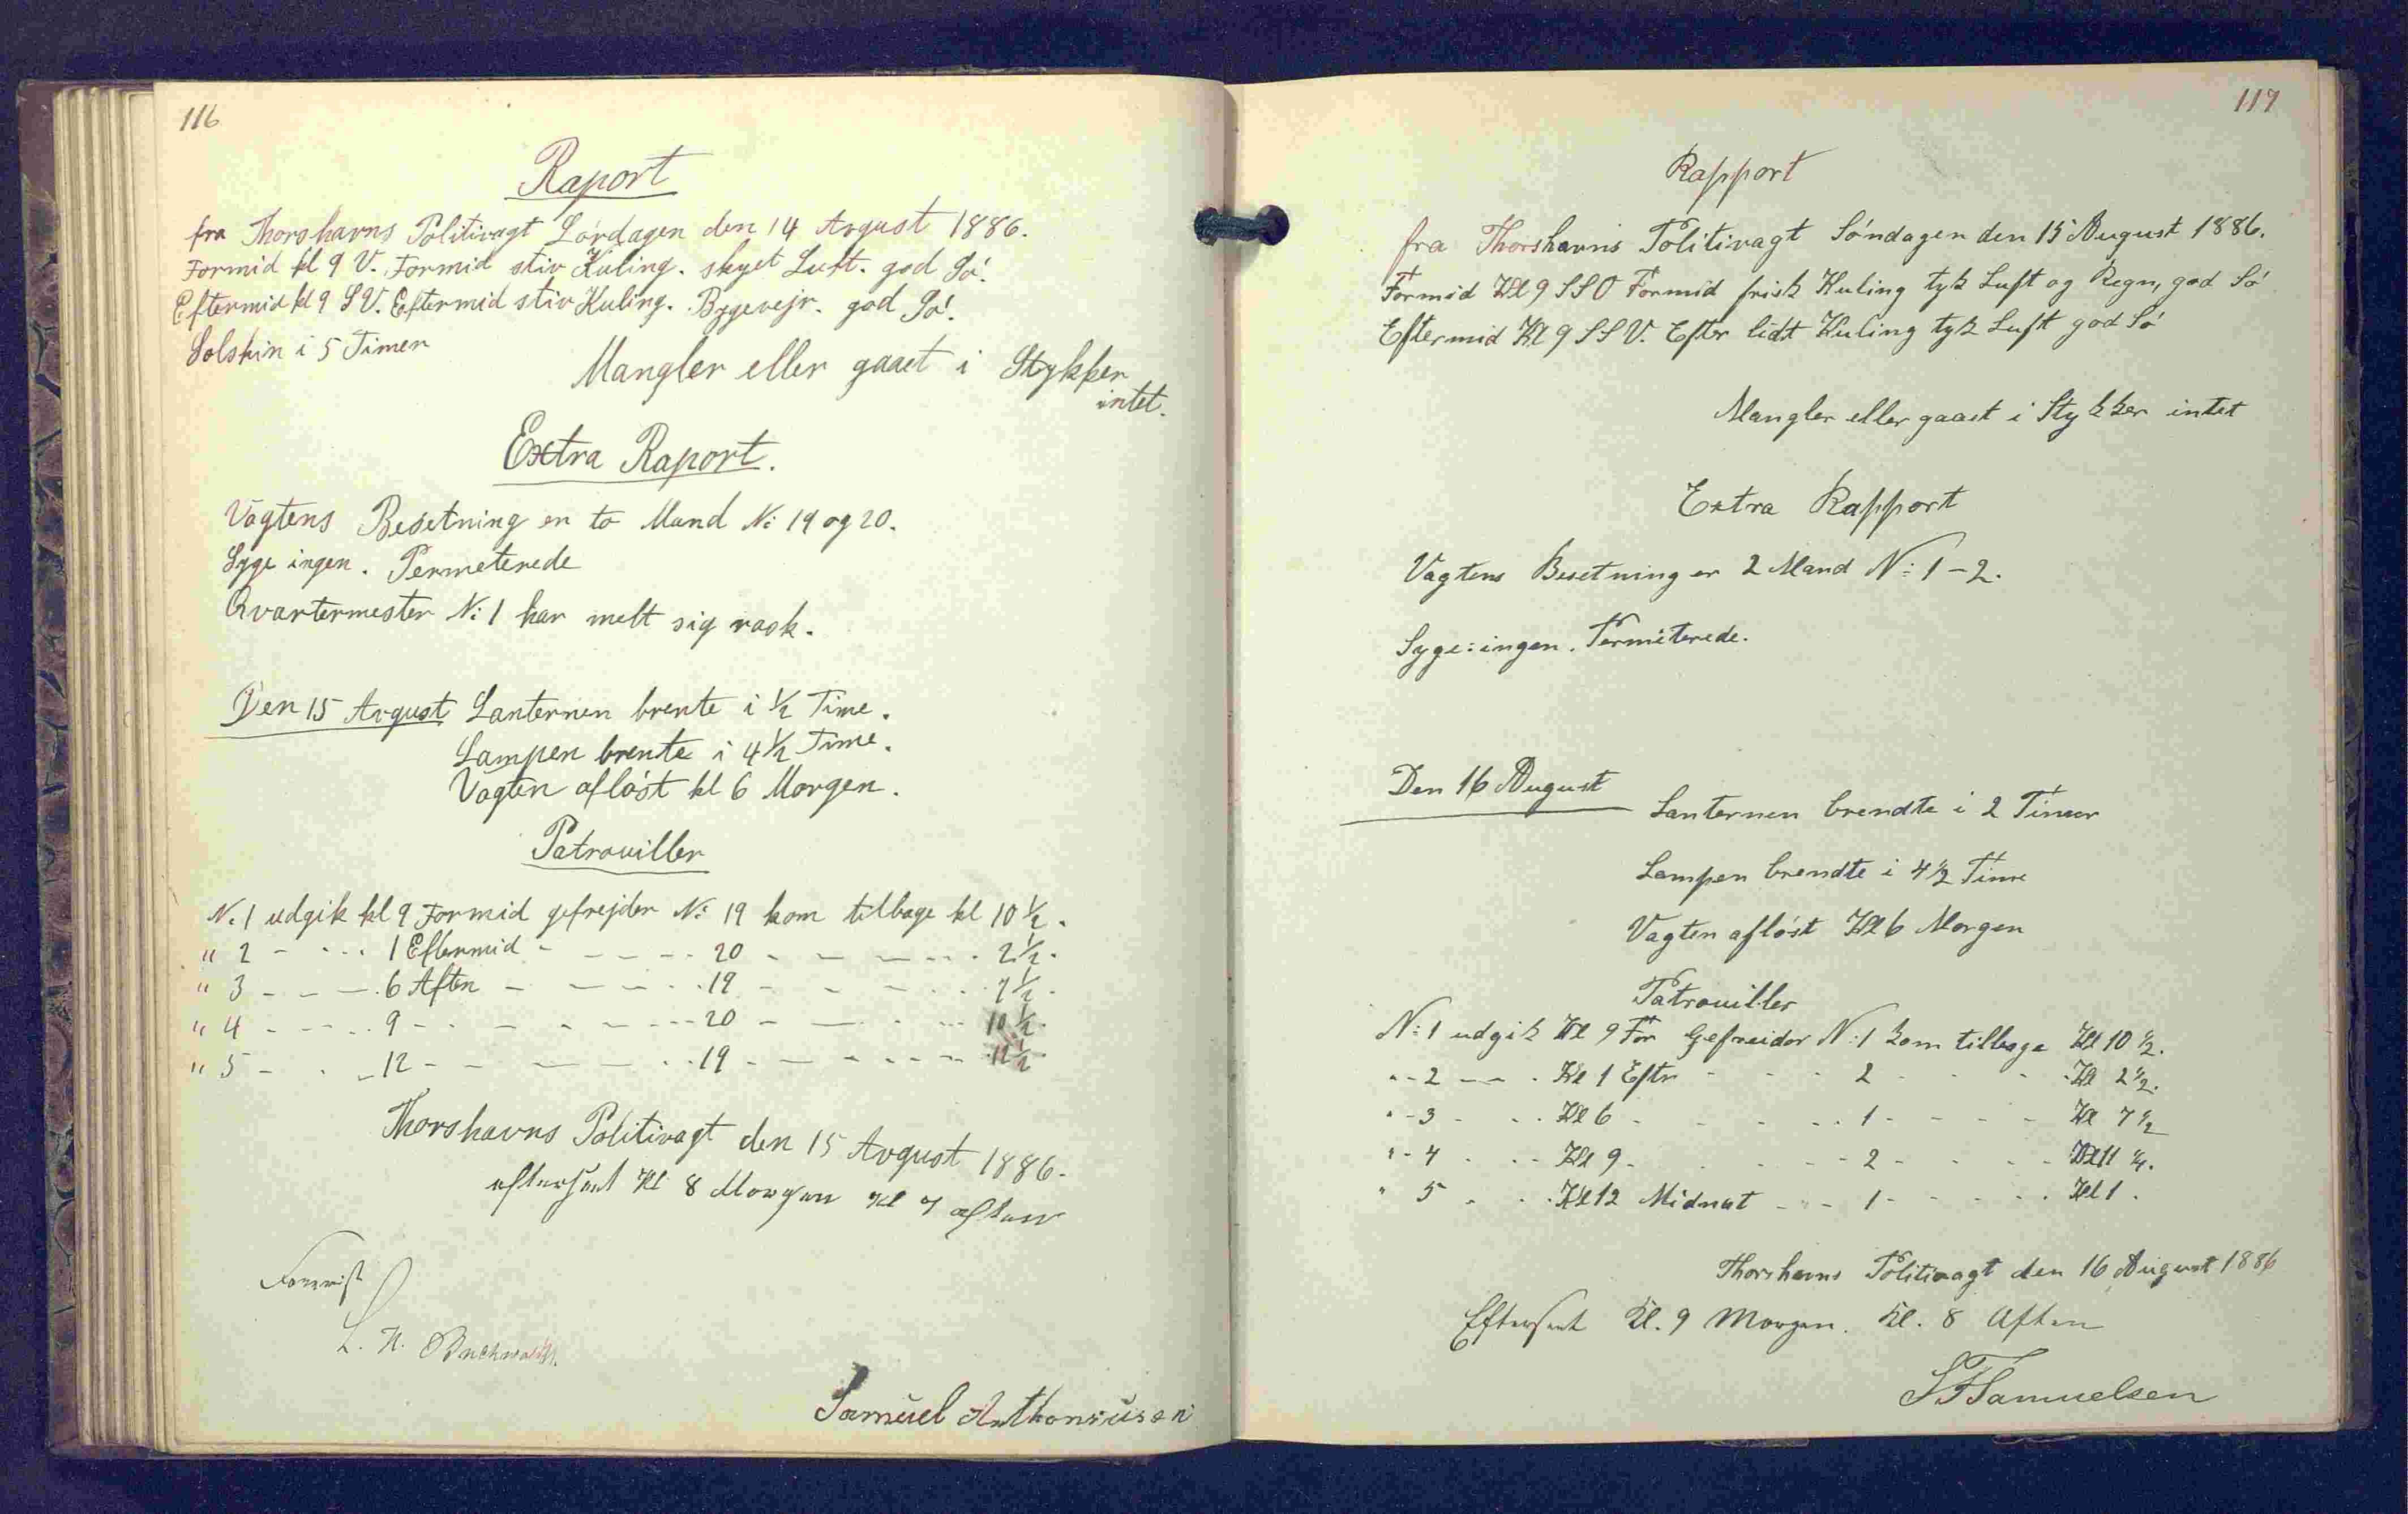 116
Raport
fra Thorshavns Politivagt Lørdagen den 14 Avgust 1886.
Formid kl 9 V. Formid stiv Kuling. skyet Luft. god Sö.
Eftermid kl 9 SV. Eftermid stiv Kuling. Bygevejr. god Sö.
Solskin i 5 Timer
Mangler eller gaaet i Stykker
intet.
Extra Raport.
Vagtens Besetning er to Mand No 19 og 20.
Syge ingen. Permeterede
Qvartermester No 1 har melt sig rask.
Den 15 Avgust Lanternen brente i 1/2 Time.
Lampen brente i 4 1/2 Time.
Vagten afløst kl 6 Morgen.
Patrouiller
No 1 udgik kl 9 Formid gefrejder No 19 kom tilbage kl 10 1/2.
" 2 - - - - 1 Eftermid - - - - - 20 - - - - - 2 1/2.
" 3 - - - 6 Aften - - - - 19 - - - - - 7 1/2.
" 4 - - - - 9 - - - - - - 20 - - - - - 10 1/2.
" 5 - - - 12 - - - - - - 19 - - - - - 12 1/2.
Thorshavns Politivagt den 15 Avgust 1886.
eftersent Kl 8 Morgen Kl 7 aften
L. H.
Samuel Anthoniusen
117
Rapport
fra Thorshavns Politivagt Söndagen den 15 August 1886.
Formid Kl 9 SSO Formid frisk Kuling tyk Luft og Regn, god Sö
Eftermid Kl 9 SSV. Efter lidt Kuling tyk Luft god Sö
Mangler eller gaaet i Stykker intet
Extra Rapport
Vagtens Besetning er 2 Mand No: 1-2.
Syge: ingen. Permiterede.
Den 16 August
Lanternen brendte i 2 Timer
Lampen brendte i 4 1/2 Time
Vagten afløst Kl 6 Morgen
Patrouiller
No: 1 udgik Kl 9 For Gefreider No: 1 kom tilbage Kl 10 1/2.
" - 2 - - . Kl 1 Eftr - - - 2 - - - Kl 2 1/2.
" - 3 - - - Kl 6 - - - - 1 - - - - Kl 7 1/2
" - 4 - - - Kl 9 - - - - 2 - - - - Kl 11 1/4.
" 5 - - - Kl 12 Midnat - - - 1 - - - - Kl 1.
Thorshavns Politivagt den 16 August 1886
Eftersent Kl. 9 Morgen. Kl. 8 Aften
Samuelsen